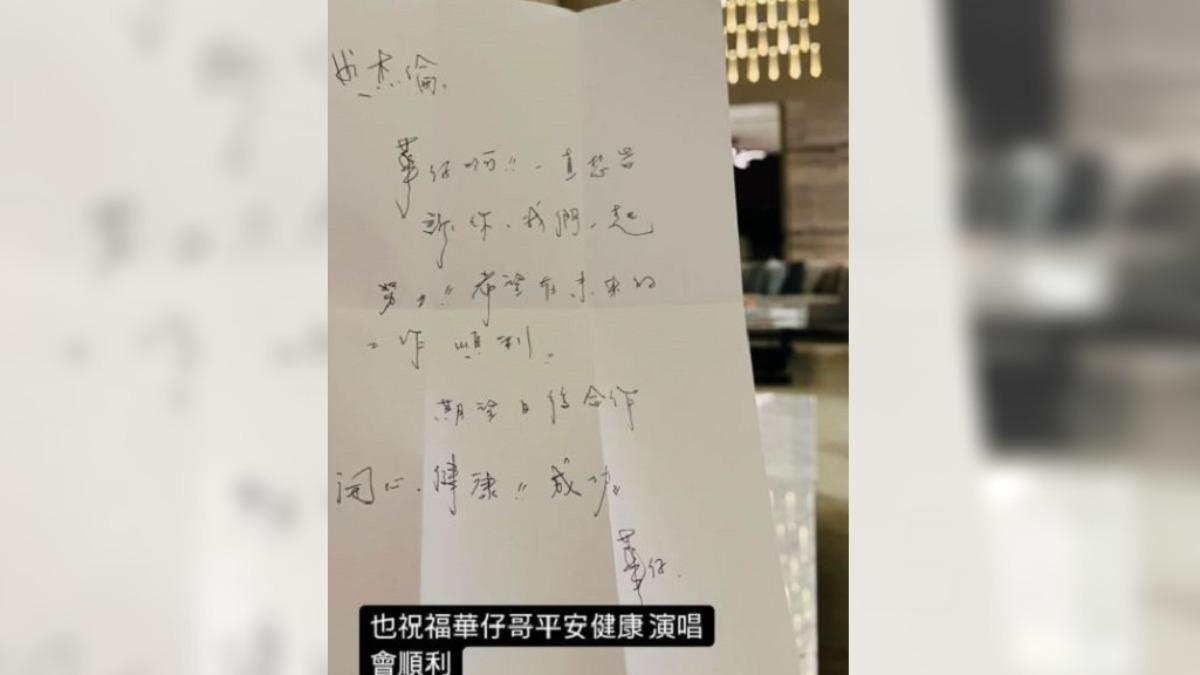 杰倫.
華仔啊!! 一直想告
訴你、我們一起
努力!! 希望在未來的
工作 順利。
期望日後合作
開心、健康!! 成功。
華仔.
也祝福華仔哥平安健康 演唱
會順利